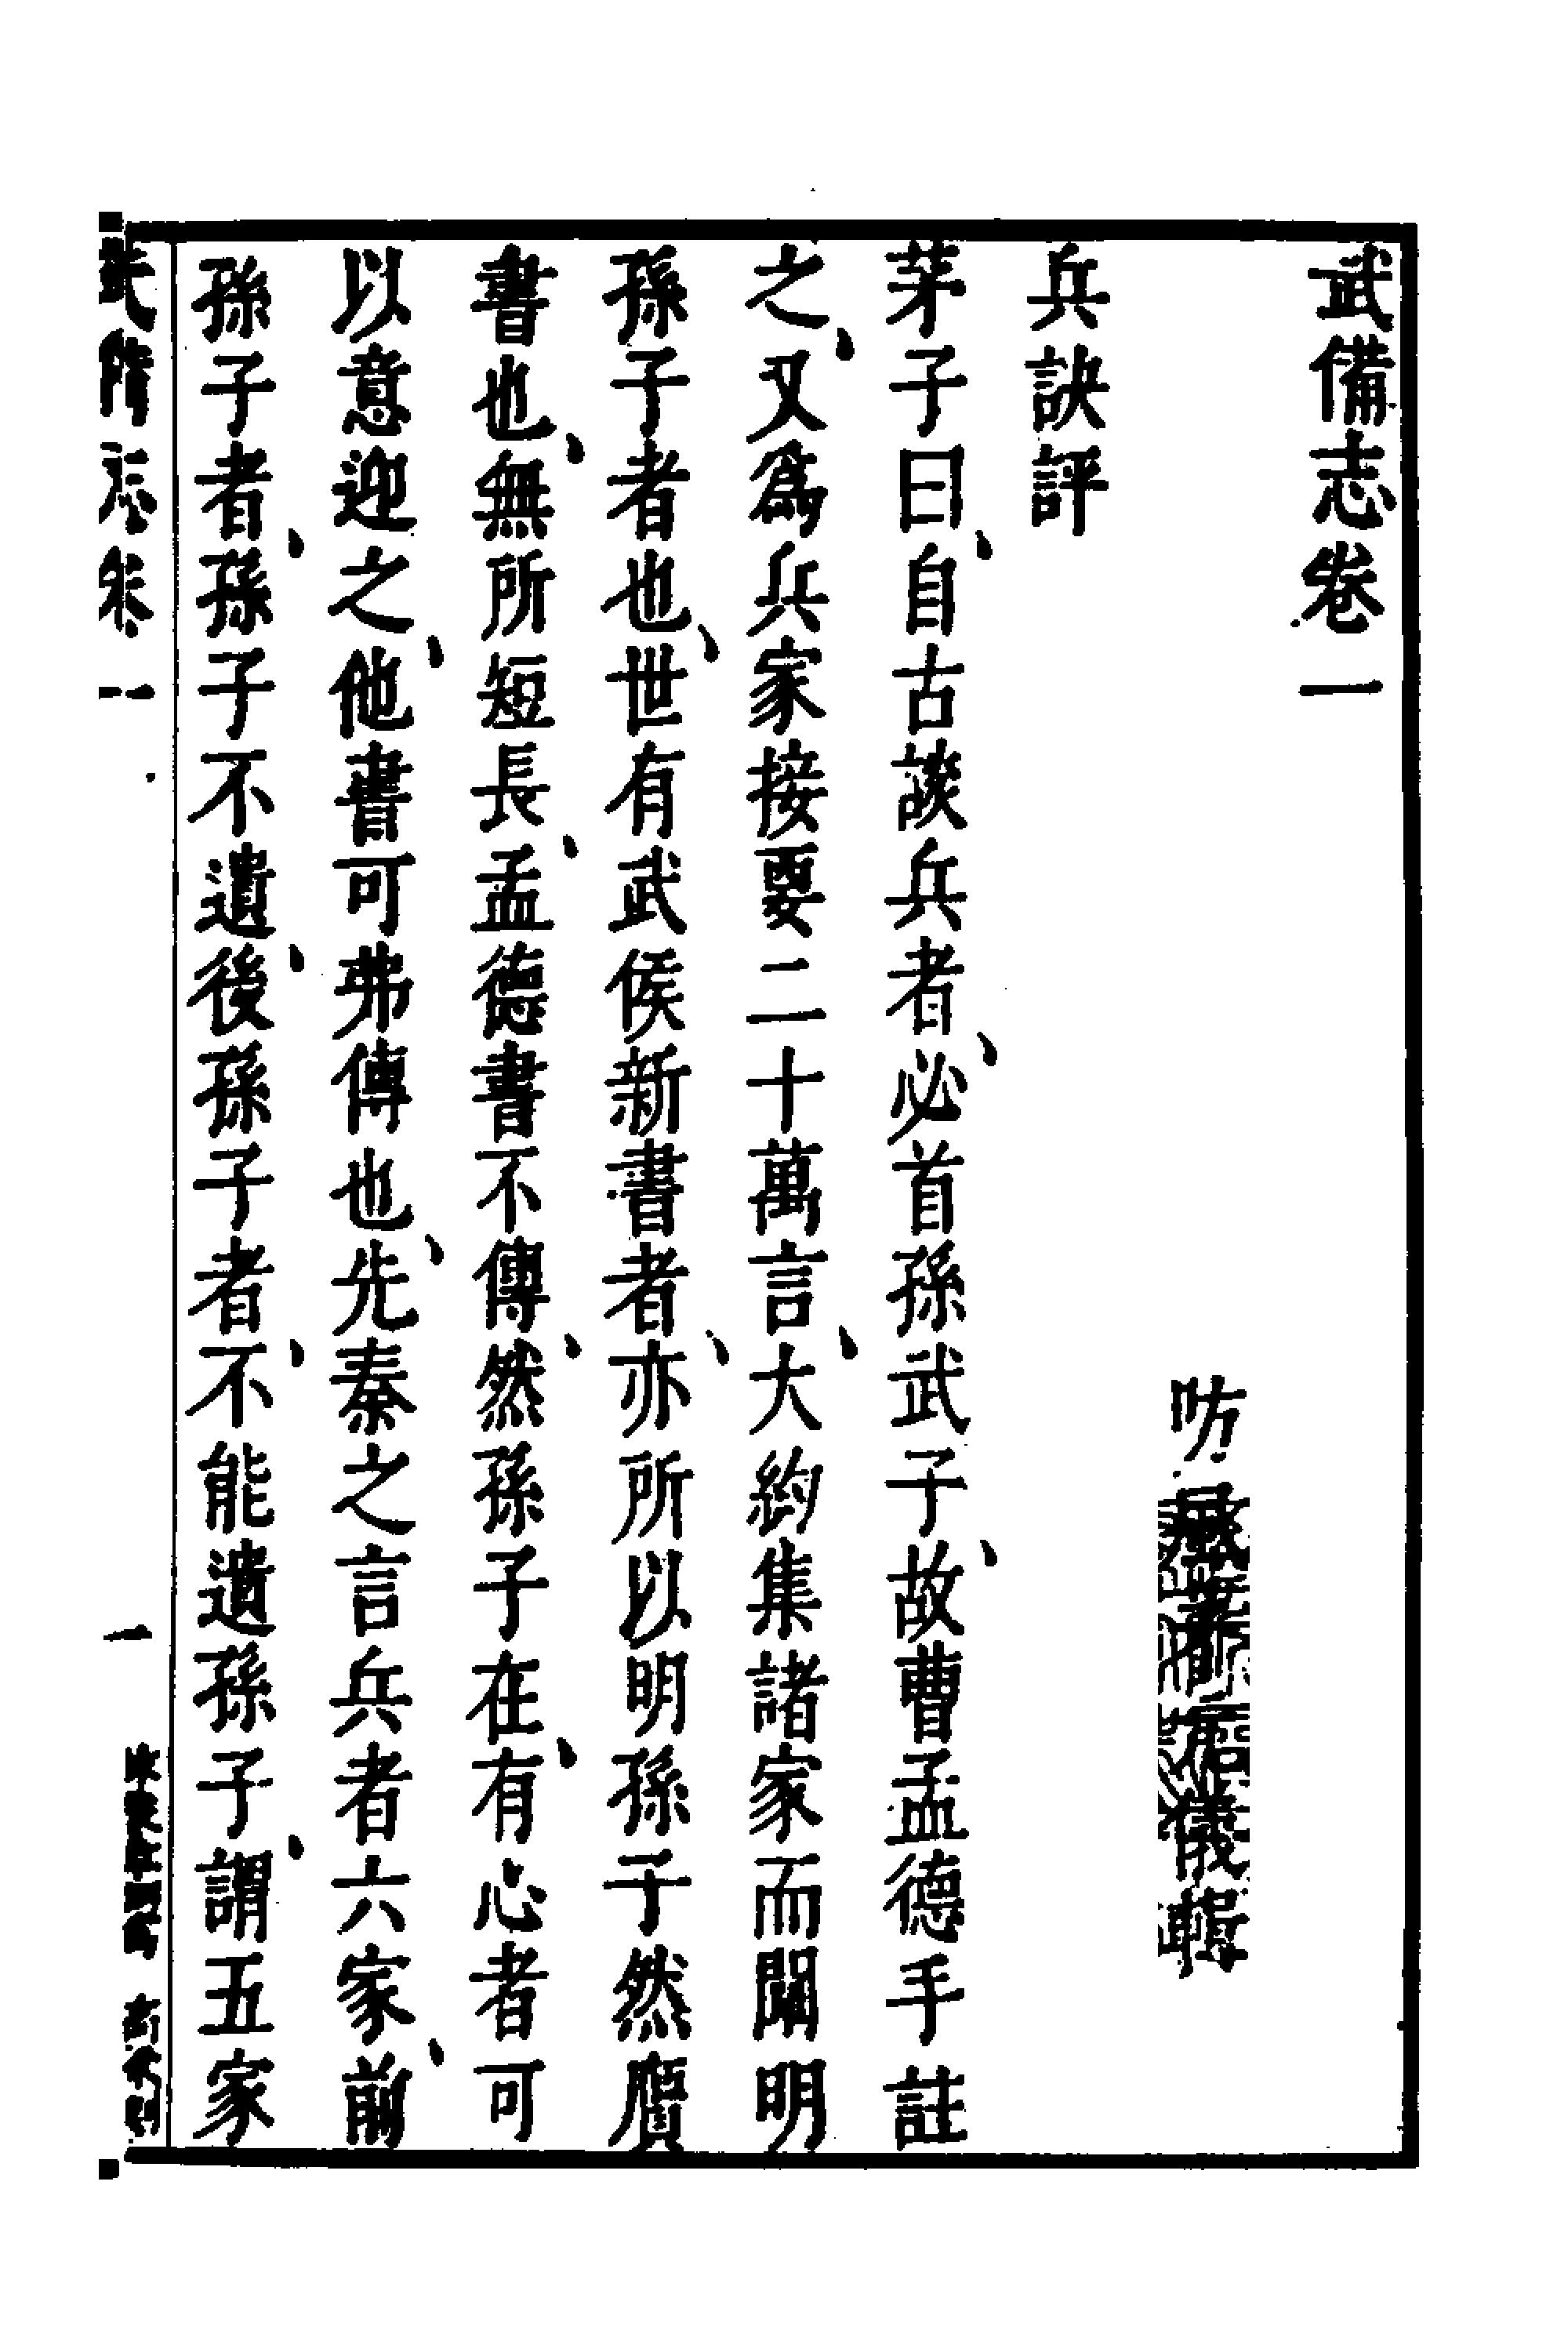 武備志卷一
防風茅元儀輯
兵訣評
茅子曰、自古談兵者、必首孫武子、故曹孟德手註
之、又爲兵家接要二十萬言、大約集諸家而闡明
孫子者也、世有武侯新書者、亦所以明孫子然贋
書也、無所短長、孟德書不傳、然孫子在、有心者可
以意迎之、他書可弗傳也、先秦之言兵者六家、前
孫子者、孫子不遺、後孫子者、不能遺孫子、謂五家
武備志卷一
一